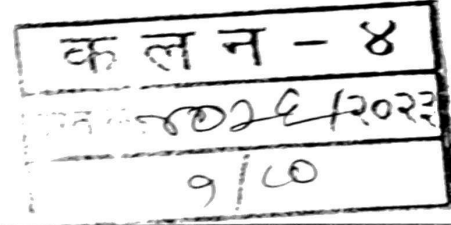 क ल न - ४
४०२६/२०२३
१/८०